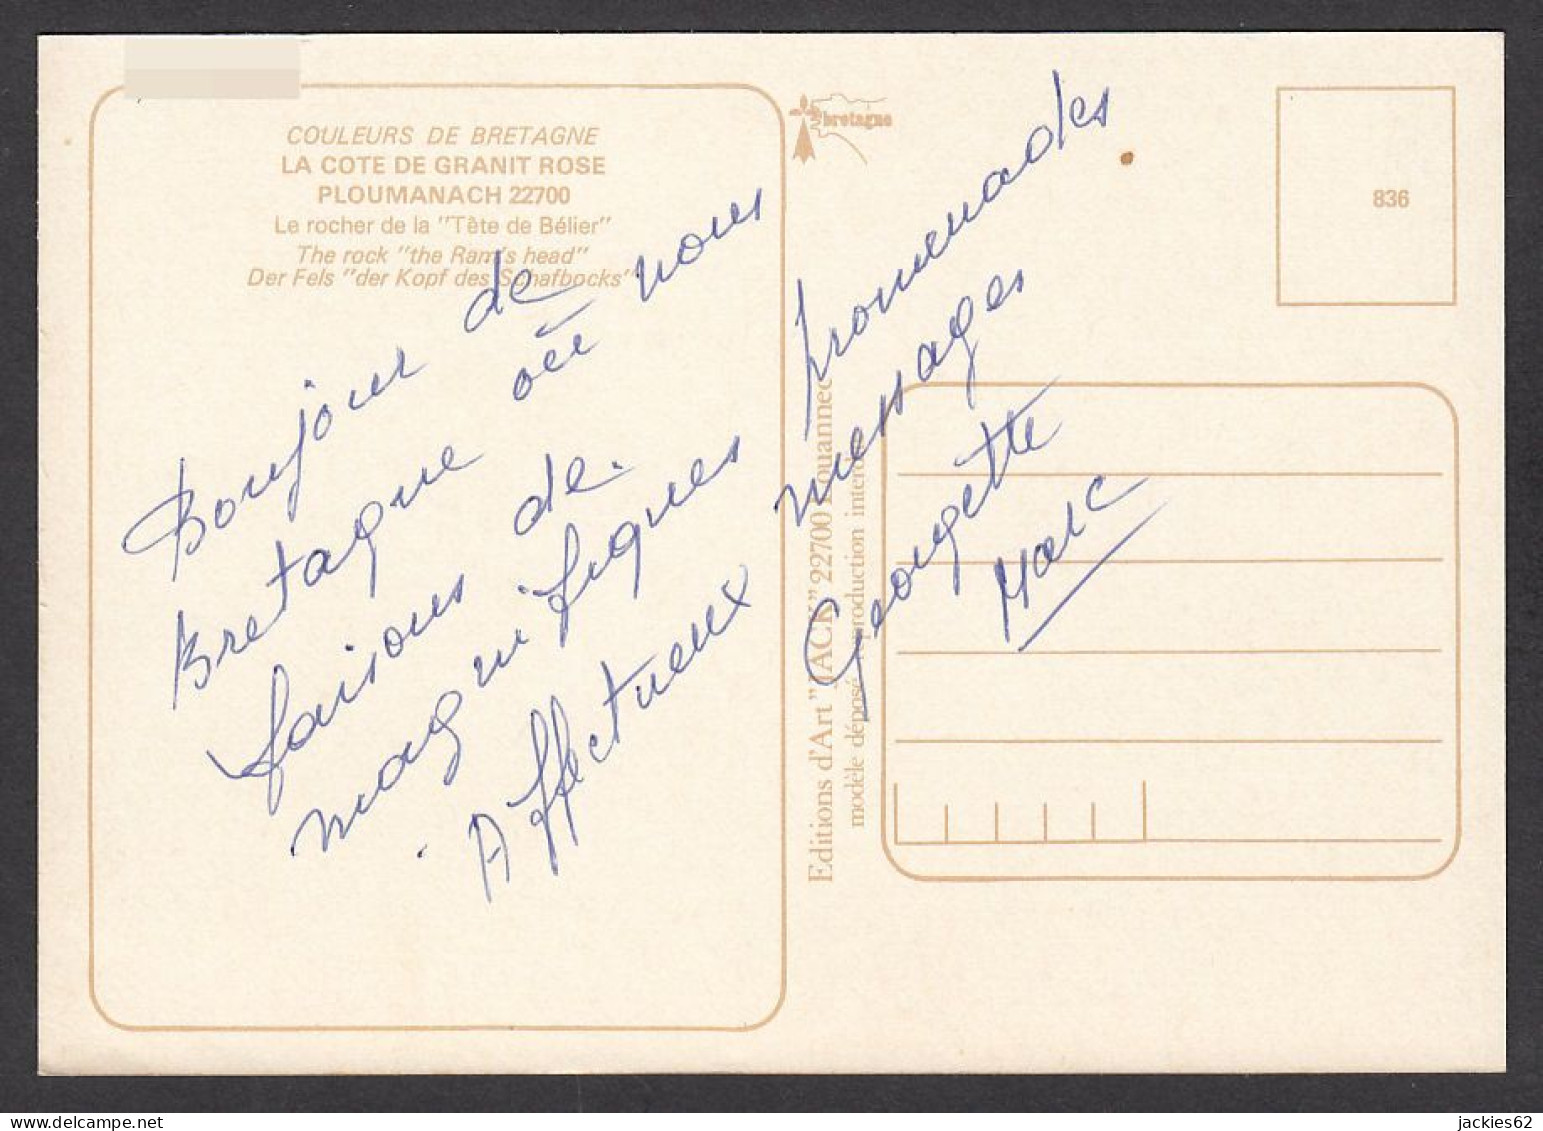 COULEURS DE BRETAGNE
LA COTE DE GRANIT ROSE
PLOUMANACH 22700
Le rocher de la "Tête de Bélier"
The rock "the Ram's head"
Der Fels "der Kopf des Schafbocks"
Bonjour de
Bretagne où nous
faisons de
magnifiques promenades.
Affectueux messages
Georgette
Marc
bretagne
836
Editions d'Art "JACK" 22700 Louannec
modèle déposé reproduction interdite
jackies62